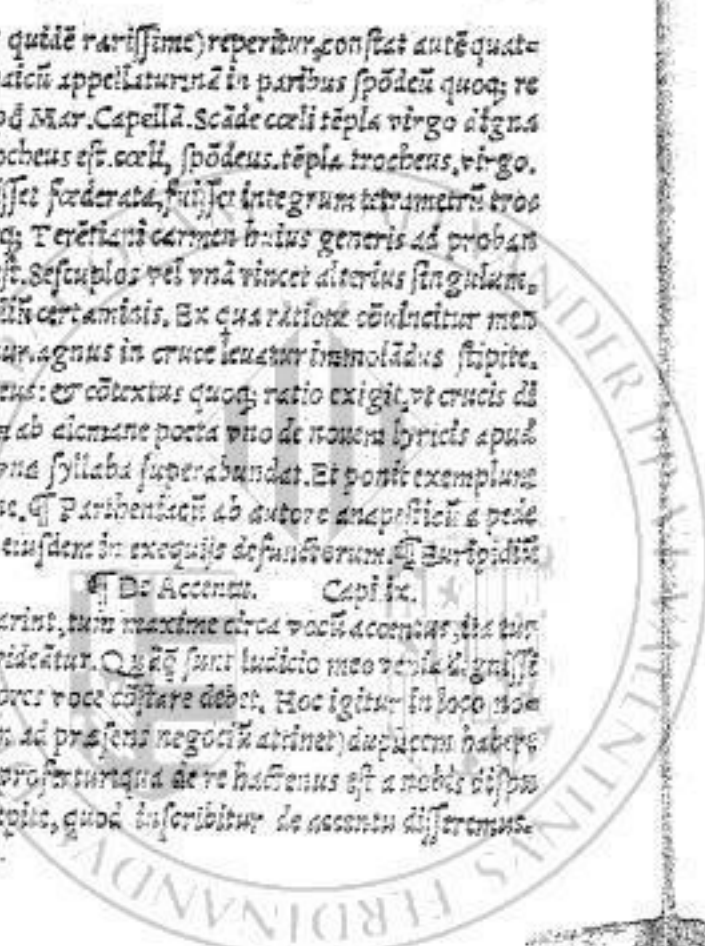 quidē rariſſime) reperitur, conſtat autē quat=
appellatur: nā in paribus ſpōdeū quoq; re
Mar. Capellā. Scāde cœli tēpla virgo digna
ocheus eſt. cœli, ſpōdeus. tēpla trocheus, virgo.
iſſet fœderata, fuiſſet integrum tetrametrū tro
q; Terētiani carmen huius generis ad proban
ſt. Seſcuplos vel vnā vincet alterius ſingulum,
certaminis. Ex qua ratione cōuincitur men
agnus in cruce leuatur immolādus ſtipite.
eus: & cōtextus quoq; ratio exigit, vt crucis
ab alcmane poeta vno de nouem lyricis apud
vna ſyllaba ſuperabundat. Et ponit exemplum
ne. ¶ Partheniacū ab autore anapeſticū a pede
eiuſdem in exequijs defunctorum. ¶ Euripidiū
¶ De Accentu. Capi. ix.
arint, tum maxime circa vocū accentus, ita
videātur. Quāq̄ ſunt iudicio meo venia digniſſi
ores voce cōſtare debet. Hoc igitur in loco no=
ad præſens negociū attinet) duplicem habere
profertur: qua de re hactenus eſt a nobis diſpu
quod inſcribitur de accentu diſſeremus.
FERDINANDVS
VALENTINVS